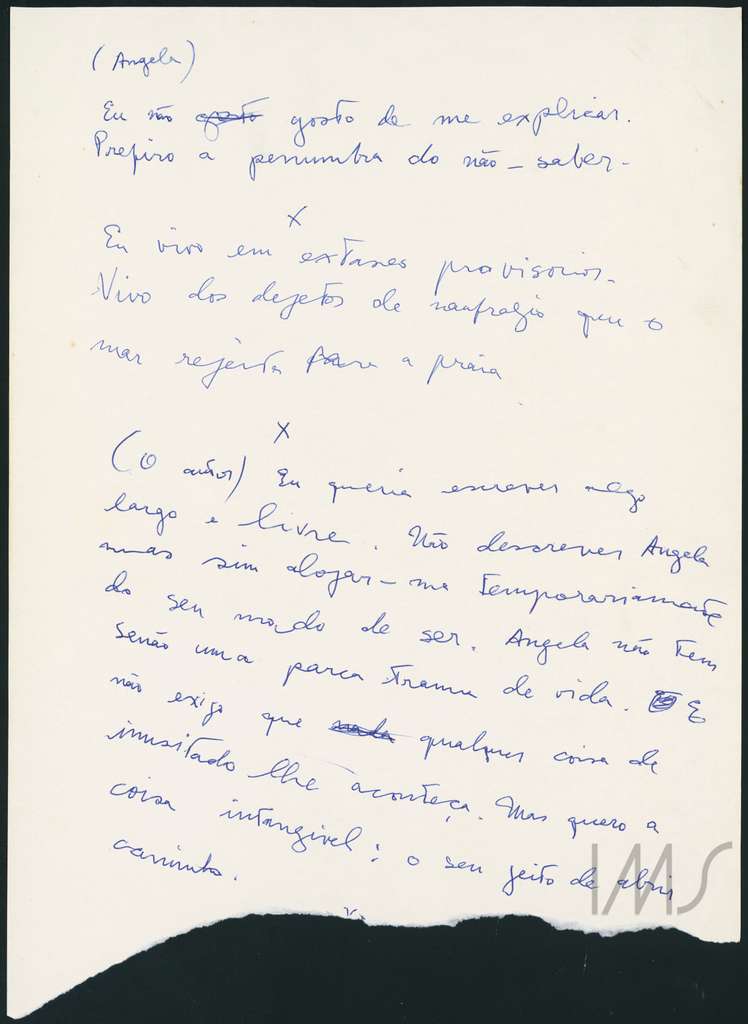 (Angela)
Eu não gosto gosto de me explicar.
Prefiro a penumbra do não-saber-
X
Eu vivo em extases provisorios.
Vivo dos dejetos de naufragio que o
mar rejeita para a praia
X
(O autor) Eu queria escrever algo
largo e livre. Não descrever Angela
mas sim alojar-me temporariamente
do seu modo de ser. Angela não tem
senão uma parca trama de vida. E
não exijo que nada qualquer coisa de
inusitado lhe aconteça. Mas quero a
coisa intangivel: o seu jeito de abrir
caminho.
IMS